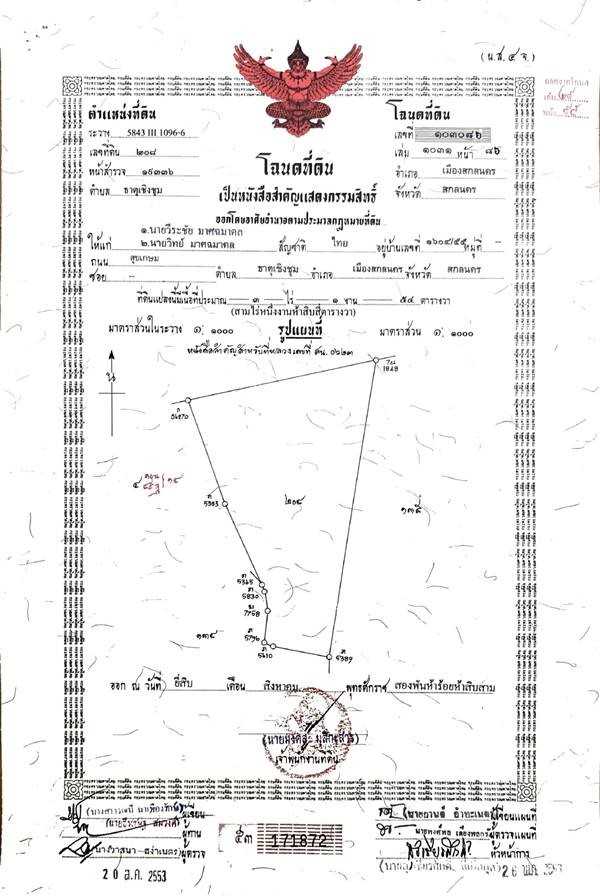 (น.ส.๔ จ.)
ตำแหน่งที่ดิน
ระวาง 5843 III 1096-6
เลขที่ดิน ๒๐๘
หน้าสำรวจ ๑๕๓๓๖
ตำบล ธาตุเชิงชุม
โฉนดที่ดิน
เลขที่ ๑๐๓๐๘๖
เล่ม ๑๐๓๑ หน้า ๘๖
อำเภอ เมืองสกลนคร
จังหวัด สกลนคร
โฉนดที่ดิน
เป็นหนังสือสำคัญแสดงกรรมสิทธิ์
ออกโดยอาศัยอำนาจตามประมวลกฎหมายที่ดิน
๑.นายวีระชัย มาศฉมาดล
ให้แก่ ๒.นายวิทย์ มาศฉมาดล สัญชาติ ไทย อยู่บ้านเลขที่ ๑๖๐๔/๕๕ หมู่ที่ –
ถนน สุขเกษม
ซอย – ตำบล ธาตุเชิงชุม อำเภอ เมืองสกลนคร จังหวัด สกลนคร
ที่ดินแปลงนี้มีเนื้อที่ประมาณ ๓ ไร่ ๑ งาน ๕๔ ตารางวา
(สามไร่หนึ่งงานห้าสิบสี่ตารางวา)
มาตราส่วนในระวาง ๑: ๑๐๐๐ รูปแผนที่ มาตราส่วน ๑: ๑๐๐๐
น
1849
5363
๒๐๘
5345
5830
7758
5796
5410
5389
ออก ณ วันที่ ยี่สิบ เดือน สิงหาคม พุทธศักราช สองพันห้าร้อยห้าสิบสาม
เจ้าพนักงานที่ดิน
ผู้เขียน
ผู้ทาน
ผู้ตรวจ
20 ส.ค. 2553
๕๓ 171872
ผู้เขียนแผนที่
ผู้ตรวจแผนที่
หัวหน้าการ